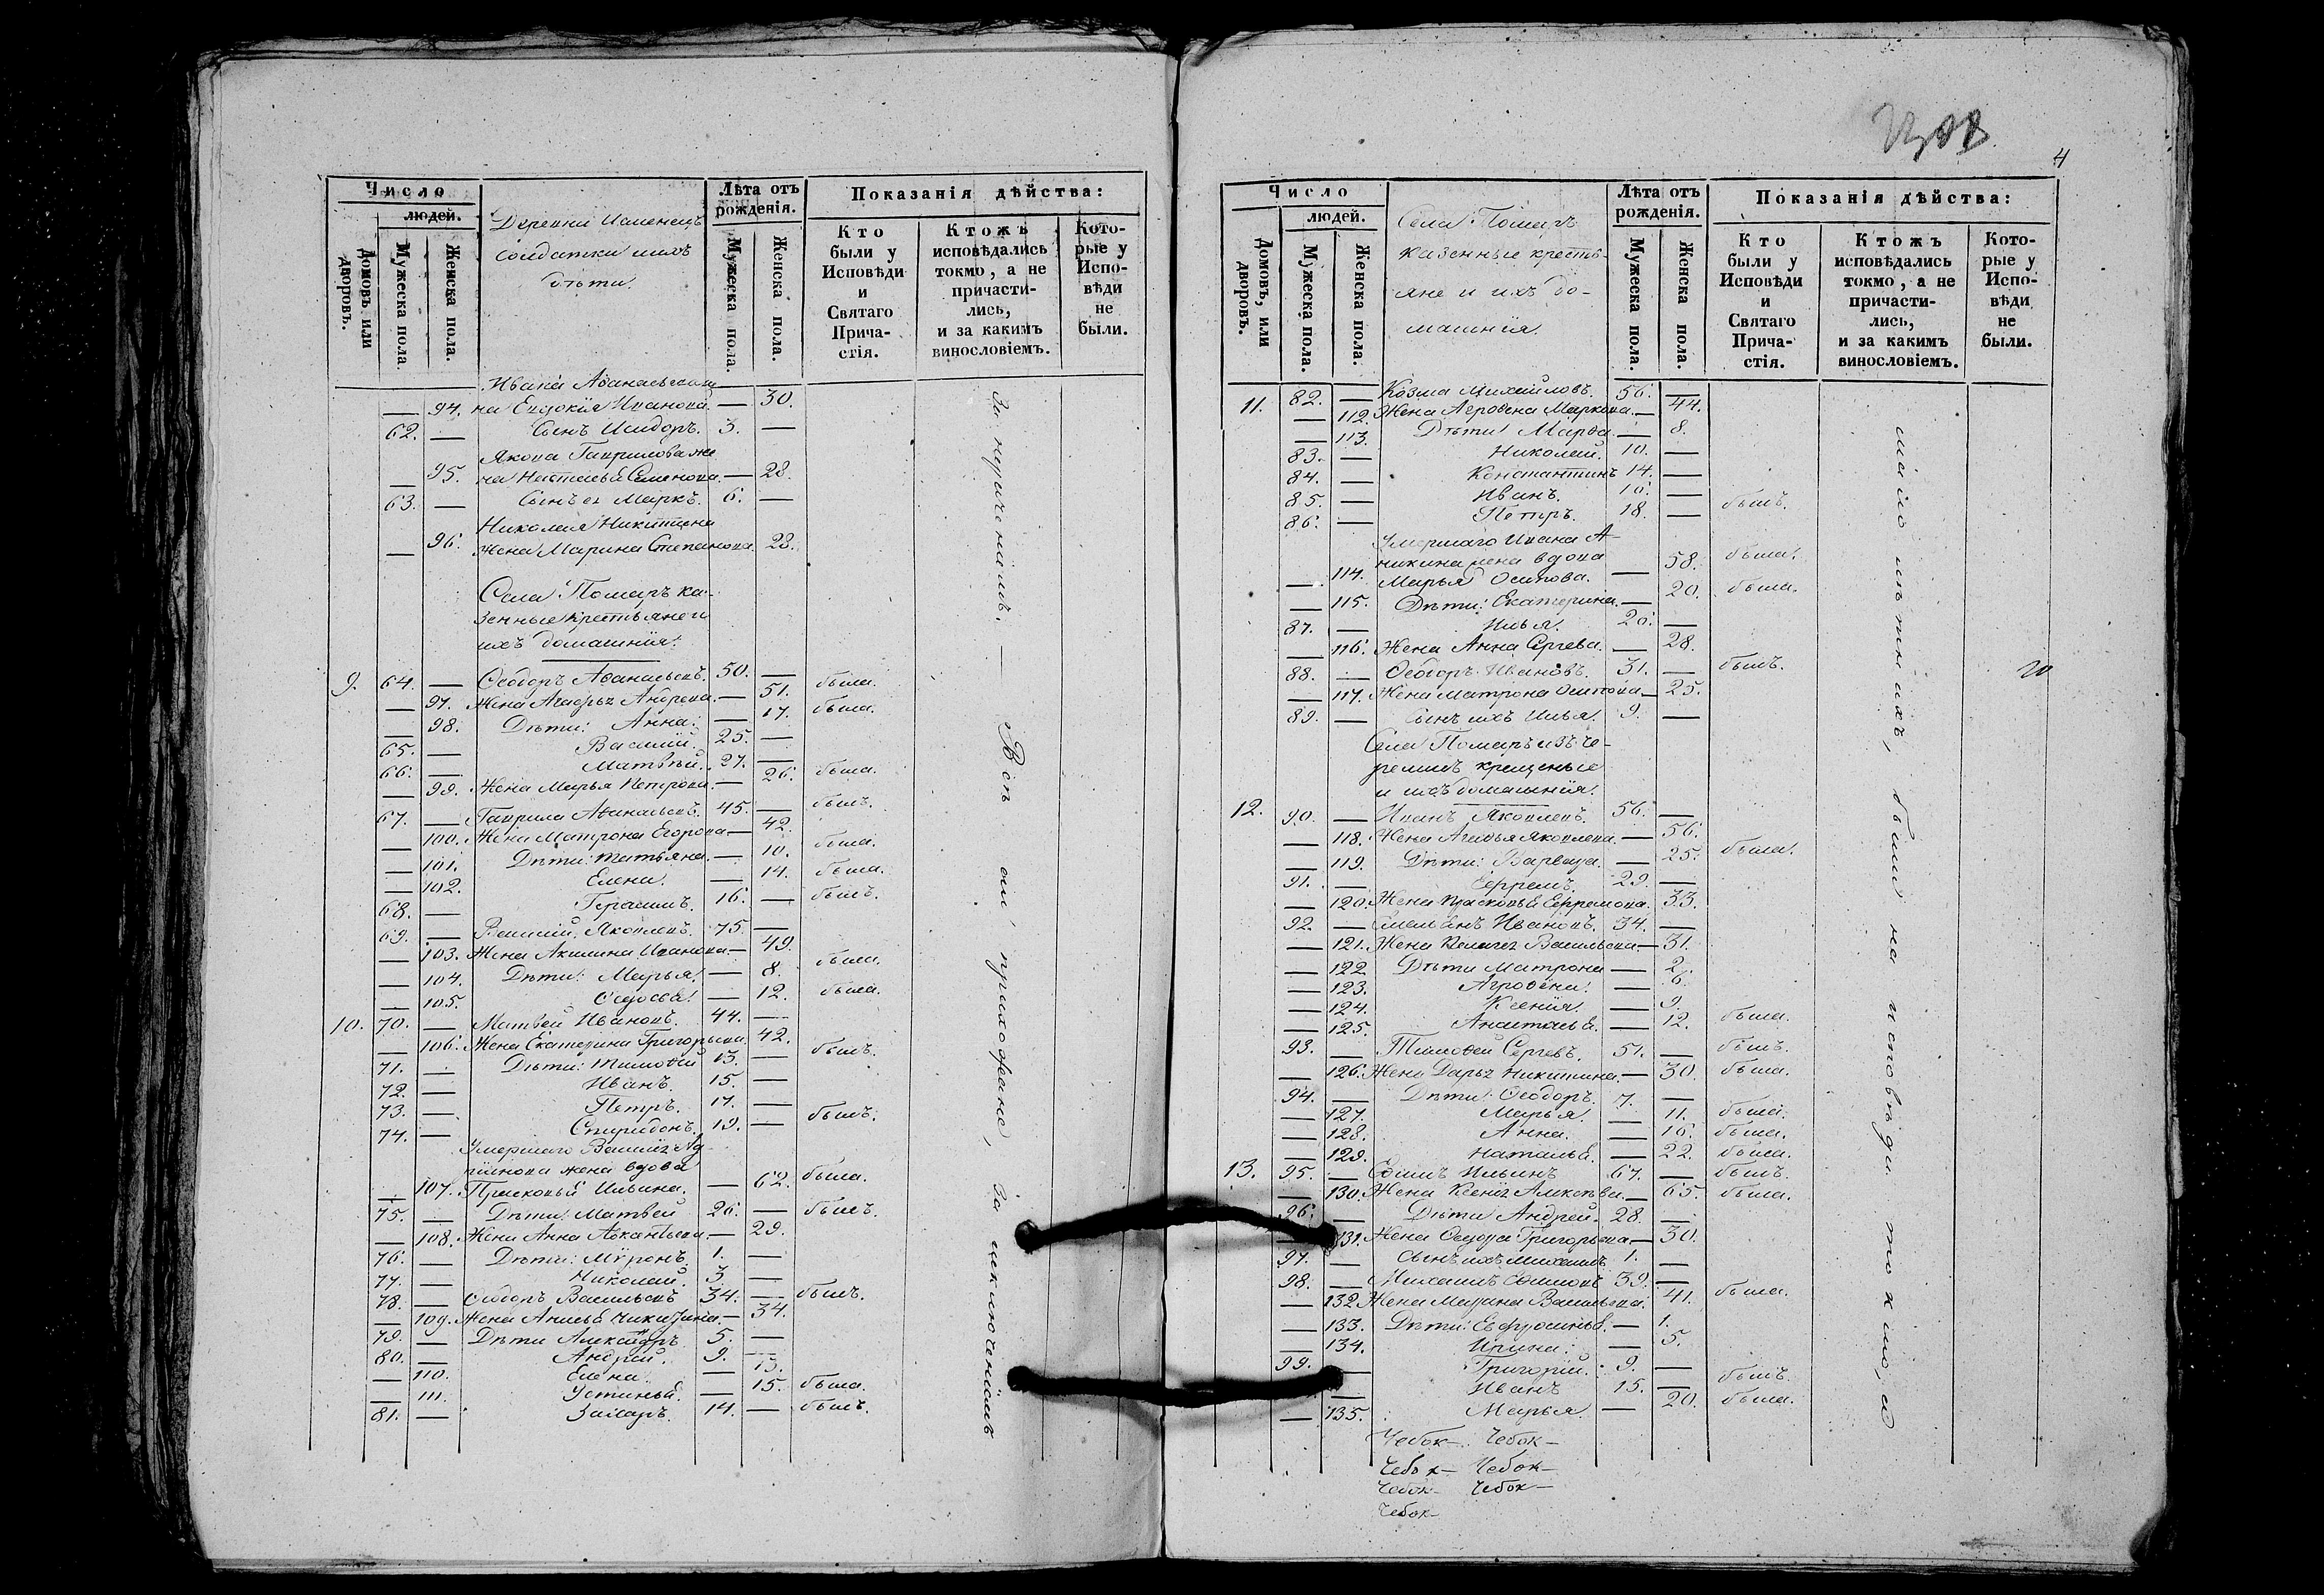 Число
людей.
Домовъ или дворовъ.
Мужеска пола
Женска пола.
Деревни
солдатки ихъ
дѣти.
Лѣта отъ рожденія.
Мужеска пола.
Женска пола.
Показанія дѣйства:
Кто были у Исповѣди и Святаго Прича-стія.
Ктожъ исповѣдались токмо, а не причасти-лись, и за какимъ винословіемъ.
Кото-рые у Испо-вѣди не были.
Ивана Аѳанасьева же
— 94. на Евдокія Иванова. — 30.
62. — Сынъ Исидоръ. 3. —
Якова Гаврилова же
— 95. на Настасья Семенова. — 28.
63. — Сынъ ея Маркъ. 6. —
Николая Никитина
— 96. жена Марина Степанова. 28.
Села Помаръ ка-
зенные крестьяне и
ихъ домашнія.
9. 64. — Ѳеодоръ Аѳанасьевъ. 50. —
— 97. Жена Агафья Андреева. — 51. была.
— 98. Дѣти: Анна. — 17. была.
65. — Василій. 25. —
66. — Матвѣй. 27. —
— 99. Жена Марья Петрова. — 26. была.
67. — Гаврила Аѳанасьевъ. 45. — былъ.
— 100. Жена Матрона Егорова — 42.
— 101. Дѣти: Татьяна. — 10. была.
— 102. Елена. — 14. была.
68. — Герасимъ. 16. — былъ.
69. — Василій Яковлевъ. 75. —
— 103. Жена Акилина Иванова — 49.
— 104. Дѣти: Марья. — 8. была.
— 105. Ѳедосья. — 12. была.
10. 70. — Матвей Ивановъ. 44. —
— 106. Жена Екатерина Григорьева. 42.
71. — Дѣти: Тимоѳей 13. — былъ.
72. — Иванъ. 15. —
73. — Петръ. 17. —
74. — Спиридонъ. 19. — былъ.
Умершаго Василія Ад
ріянова жена вдова
— 107. Прасковья Ильина. — 62. была.
75. — Дѣти: Матвей 26. — былъ.
— 108. Жена Анна — 29.
76. — Дѣти: Мѵронъ 1. —
77. — Николай. 3. —
78. — Ѳеодоръ Васильевъ 34. — былъ.
— 109. Жена Анисья — 34.
79. — Дѣти Александръ 5. —
80. — Андрей. 9. —
— 110. Елена. — 13.
— 111. Устинья. — 15. была.
81. — Захаръ. 14. — былъ.
За неученіемъ. — Всѣ сіи прихожане, за исключеніемъ
4
Число
людей.
Домовъ, или дворовъ.
Мужеска пола.
Женска пола.
Села Помаръ
казенные кресть-
яне и ихъ до-
машнія.
Лѣта отъ рожденія.
Мужеска пола.
Женска пола.
Показанія дѣйства:
Кто были у Исповѣди и Святаго Прича-стія.
Ктожъ исповѣдались токмо, а не причасти-лись, и за какимъ винословіемъ.
Кото-рые у Испо-вѣди не были.
11. 82. — Козма Михайловъ. 56. —
— 112. Жена Агрофена Маркова. — 44.
— 113. Дѣти: Марѳа. — 8.
83. — Николай. 10. —
84. — Константинъ 14. —
85. — Иванъ. 16. —
86. — Петръ. 18. — былъ.
Умершаго Ивана А-
никина жена вдова
— 114. Марья Осипова. — 58. была.
— 115. Дѣти: Екатерина. — 20. была.
87. — Илья. 26. —
— 116. Жена Анна Сергѣева. — 28.
88. — Ѳеодоръ Ивановъ. 31. — былъ.
— 117. Жена Матрона Осипова — 25.
89. — Сынъ ихъ Илья. 9. —
Села Помаръ изъ че-
ремисъ крещеные
и ихъ домашнія.
12. 90. — Иванъ Яковлевъ. 56. —
— 118. Жена Яковлева. — 56.
— 119. Дѣти: Варвара. — 25. была.
91. — Ефремъ. 29. —
— 120. Жена Прасковья Ефремова. 33.
92. — Емельянъ Ивановъ. 34. —
— 121. Жена Пелагея Васильева — 31.
— 122. Дѣти Матрона — 2.
— 123. Агрофена. — 6.
— 124. Ксенія. — 9.
— 125. Анастасья. — 12. была.
93. — Тимоѳей Сергѣевъ. 51. — былъ.
— 126. Жена Дарья Никитина. — 30. была.
94. — Дѣти: Ѳеодоръ. 7. —
— 127. Марья. — 11. была.
— 128. Анна. — 16. была.
— 129. Наталья. — 22. была.
13. 95. — Ефимъ Ильинъ 67. — былъ.
— 130. Жена Ксенія — 65. была.
96. — Дѣти Андрей. 28. —
131. Жена Григорьева — 30.
97. — Сынъ ихъ Михаилъ 1. —
98. — Михаилъ Ефимовъ 39. —
— 132. Жена Марина Васильева. 41. была.
— 133. Дѣти: Евфросинья. — 1.
— 134. Ирина. — 5.
99. — Григорій. 9. —
— Иванъ 15. — былъ.
— 135. Марья. — 20. была.
Чебок— Чебок—
Чебок— Чебок—
Чебок— Чебок—
Чебок—
были на исповѣди токмо, а